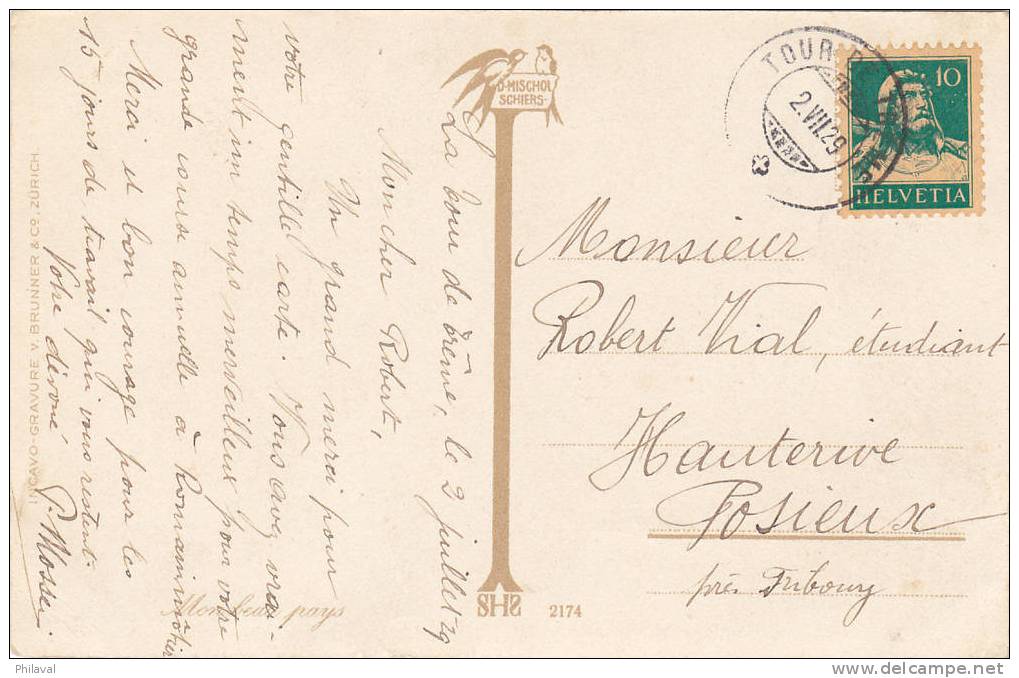 La Tour de Trême, le 2 juillet 29
Mon cher Robert,
Un grand merci pour
votre gentille carte. Vous avez vrai-
ment un temps merveilleux pour votre
grande course annuelle à Romainmôtier
Merci et bon courage pour les
15 jours de travail qui vous restent.
Votre dévoué
P. Mossu.
INCAVO-GRAVURE V. BRUNNER & Co, ZÜRICH.
Mon beau pays
D. MISCHOL
SCHIERS
SHS
2174
TOUR DE
2.VII.29
10
HELVETIA
Monsieur
Robert Vial, étudiant
Hauterive
Posieux
près Fribourg
Philaval
delcampe.net